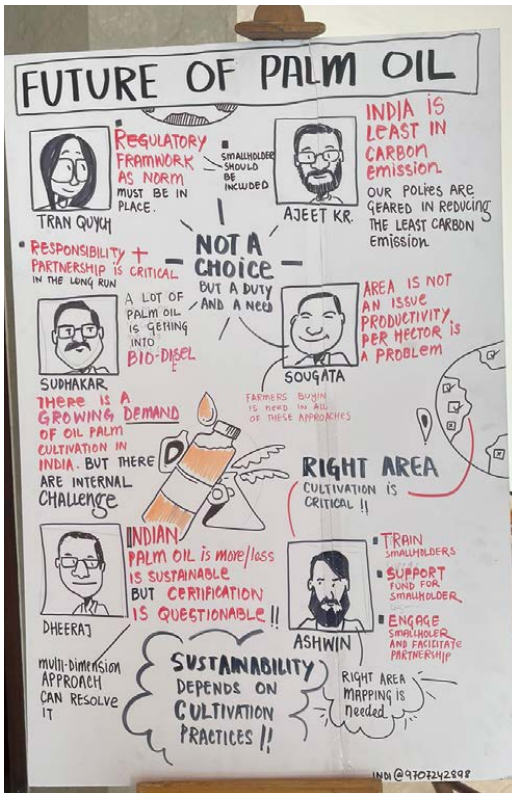 FUTURE OF PALM OIL
REGULATORY
FRAMWORK
AS NORM
MUST BE IN
PLACE.
SMALLHOLDER
SHOULD
BE
INCLUDED
TRAN QUYCH
INDIA IS
LEAST IN
CARBON
EMISSION.
OUR POLICES ARE
GEARED IN REDUCING
THE LEAST CARBON
EMISSION
AJEET KR.
RESPONSIBILITY +
PARTNERSHIP IS CRITICAL
IN THE LONG RUN
NOT A
CHOICE
BUT A DUTY
AND A NEED
A LOT OF
PALM OIL
IS GETTING
INTO
BIO-DISEL
SUDHAKAR
AREA IS NOT
AN ISSUE
PRODUCTIVITY
PER HECTOR IS
A PROBLEM
SOUGATA
FARMERS BUYIN
IS NEED IN ALL
OF THESE APPROACHES
THERE IS A
GROWING DEMAND
OF OIL PALM
CULTIVATION IN
INDIA. BUT THERE
ARE INTERNAL
CHALLENGE
RIGHT AREA
CULTIVATION IS
CRITICAL !!
INDIAN
PALM OIL is more/less
IS SUSTAINABLE
BUT CERTIFICATION
IS QUESTIONABLE !!
DHEERAJ
multi-DIMENSION
APPROACH
CAN RESOLVE
IT
TRAIN
SMALLHOLDERS
SUPPORT
FUND FOR
SMALLHOLDER
ENGAGE
SMALLHOLER
AND FACILITATE
PARTNERSHIP
ASHWIN
RIGHT AREA
MAPPING IS
needed
SUSTAINABILITY
DEPENDS ON
CULTIVATION
PRACTICES !!
INDI@9707242898